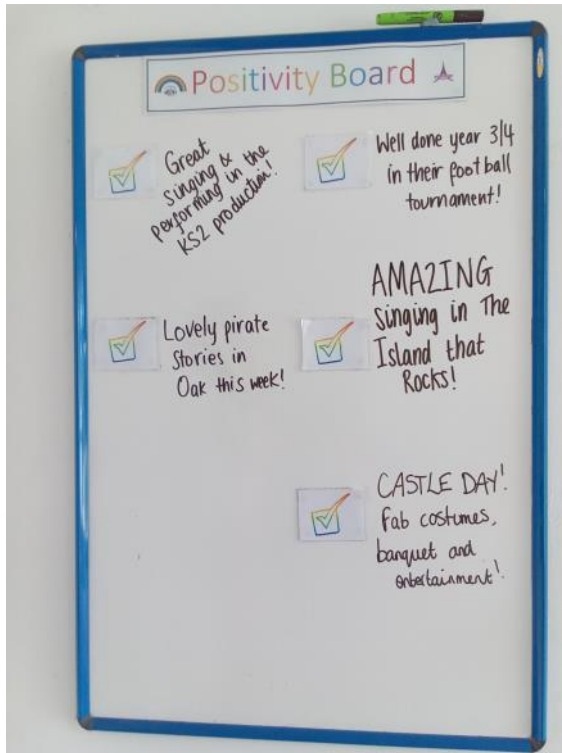 Positivity Board
Great
singing &
performing in the
KS2 production!
Well done year 3/4
in their football
tournament!
Lovely pirate
Stories in
Oak this week!
AMAZING
singing in The
Island that
Rocks!
CASTLE DAY!
Fab costumes,
banquet and
entertainment!